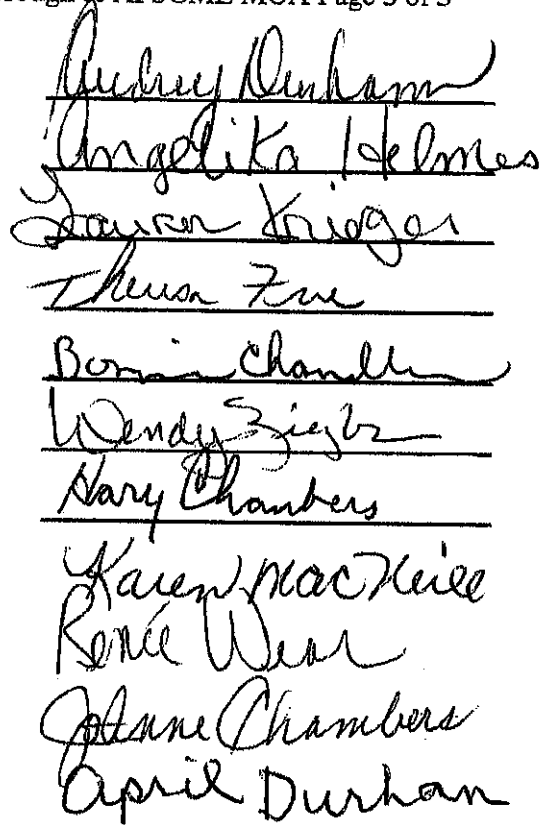 AFSCME MOA Page 3 of 3
Audrey Denham
Angelika Helmes
Lauren Krieger
Theresa
Bonnie Chandler
Wendy Ziegler
Chambers
Karen MacNeill
Renée Wear
JoAnne Chambers
April Durham